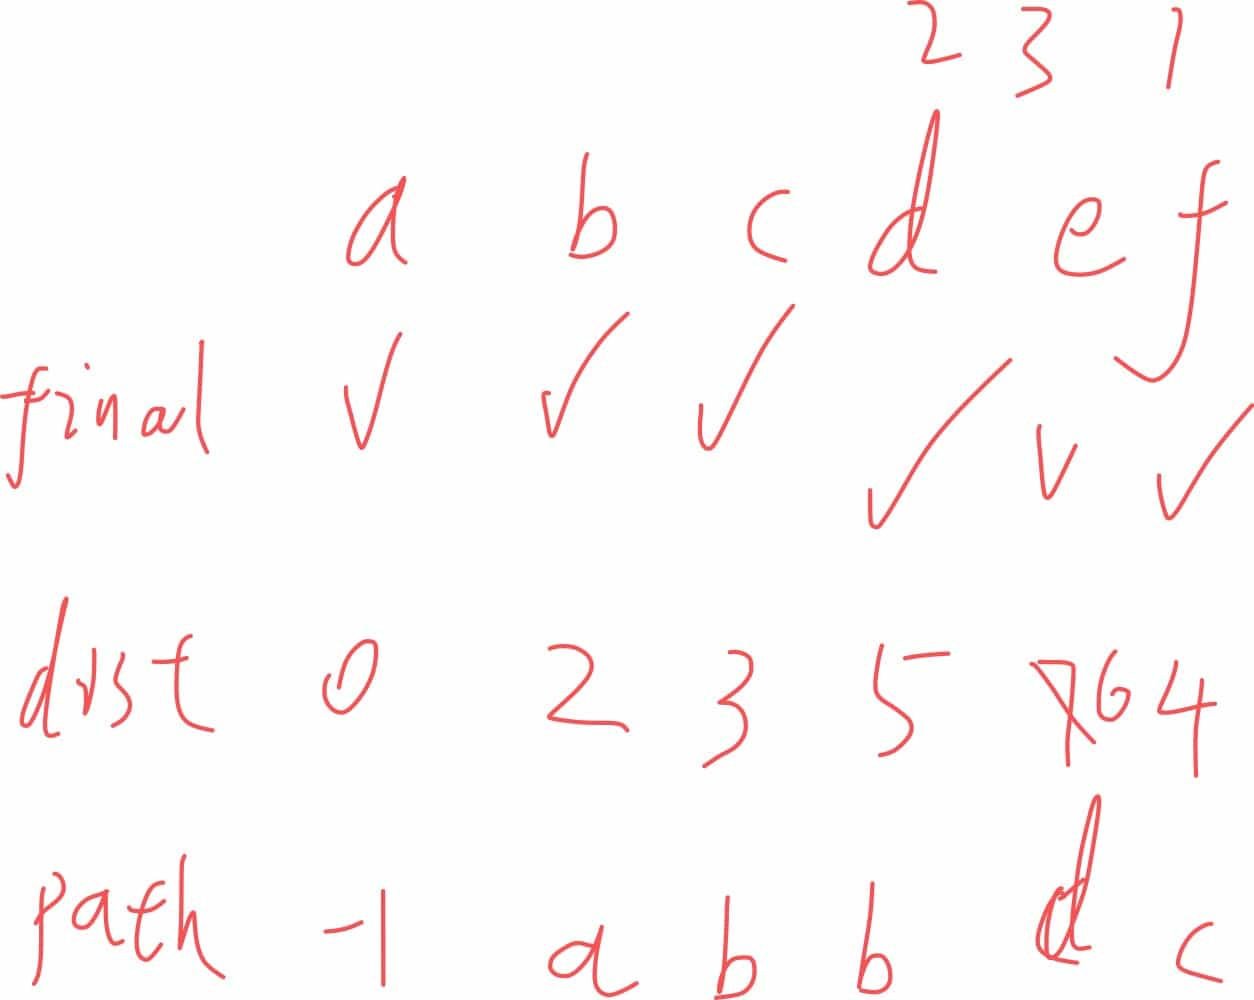 2 3 1
a b c d e f
final ✓ ✓ ✓ ✓ ✓ ✓
dist 0 2 3 5 7 6 4
path -1 a b b d c